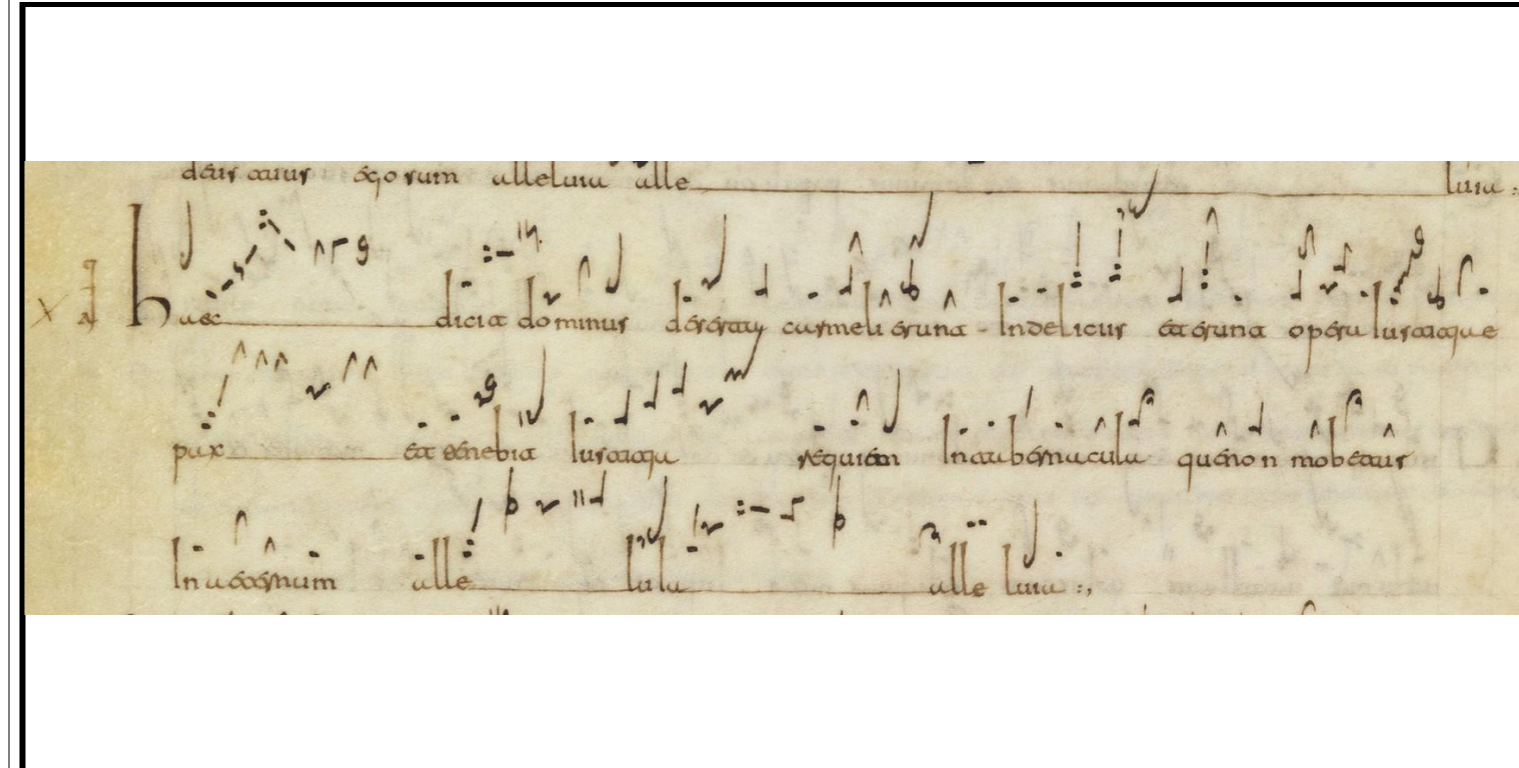 deus tuus ego sum alleluia alle luia
Haec dicit dominus deserta carmeli erunt In delicias et erunt opera Iustitie
pax et tenebit Iustitia requiem In tabernacula que non mobetur
In aeternum alle luia alle luia